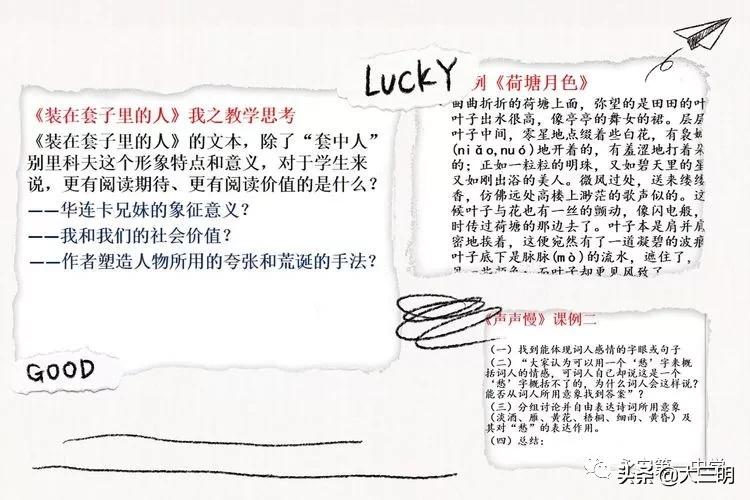 LUCKY
《装在套子里的人》我之教学思考
《装在套子里的人》的文本，除了“套中人”
别里科夫这个形象特点和意义，对于学生来
说，更有阅读期待、更有阅读价值的是什么？
——华连卡兄妹的象征意义？
——我和我们的社会价值？
——作者塑造人物所用的夸张和荒诞的手法？
GOOD
例《荷塘月色》
曲曲折折的荷塘上面，弥望的是田田的叶
叶子出水很高，像亭亭的舞女的裙。层层
叶子中间，零星地点缀着些白花，有袅娜
(niǎo,nuó)地开着的，有羞涩地打着朵
的；正如一粒粒的明珠，又如碧天里的星
又如刚出浴的美人。微风过处，送来缕缕
香，仿佛远处高楼上渺茫的歌声似的。这
候叶子与花也有一丝的颤动，像闪电般，
时传过荷塘的那边去了。叶子本是肩并肩
密地挨着，这便宛然有了一道凝碧的波痕
叶子底下是脉脉(mò)的流水，遮住了，
见一些颜色；而叶子却更见风致了
《声声慢》课例二
（一）找到能体现词人感情的字眼或句子
（二）“大家认为可以用一个‘愁’字来概
括词人的情感，可词人自己却说这是一个
‘愁’字概括不了的，为什么词人会这样说？
能否从词人所用意象找到答案”？
（三）分组讨论并自由表达诗词所用意象
（淡酒、雁、黄花、梧桐、细雨、黄昏）及
其对“愁”的表达作用。
（四）总结：
永安第一中学
头条@大三明